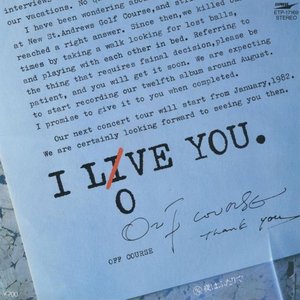 ETP-17169
STEREO
interviews
our vacations. No q
I have been wondering about
at New St.Andrews Golf Course, and st
reached a right answer. Since then, we killed our
times by taking a walk looking for lost balls,
and playing with each other in bed. Referring to
the thing that requires fainal decision, please be
patient, and you will get it soon. We are expecting
to start recording our twelfth album around August.
I promise to give it to you when completed.
Our next concert tour will start from January, 1982.
We are certainly looking forward to seeing you then.
I LIVE YOU.
O
OFF COURSE
thank you
OFF COURSE
¥700
夜はふたりで